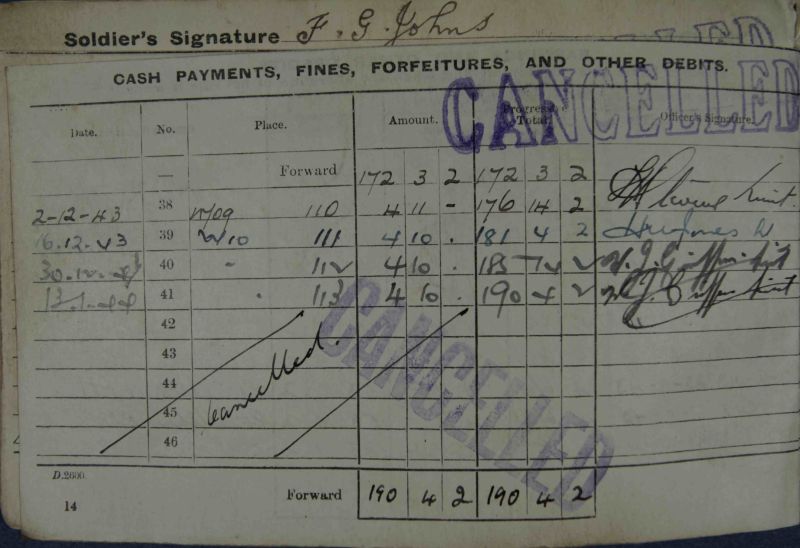 Soldier's Signature F. G. Johns
CASH PAYMENTS, FINES, FORFEITURES, AND OTHER DEBITS.
CANCELLED
Date. No. Place. Amount. Progressive Total. Officer's Signature.
— Forward 172 3 2 172 3 2
2-12-43 38 110 4 11 - 176 14 2
16.12.43 39 W10 111 4 10 . 181 4 2
30.12.43 40 " 112 4 10 . 185 14 2
13.1.44 41 " 113 4 10 . 190 4 2
42
43
44
45
46
Cancelled.
CANCELLED
D.2600. Forward 190 4 2 190 4 2
14